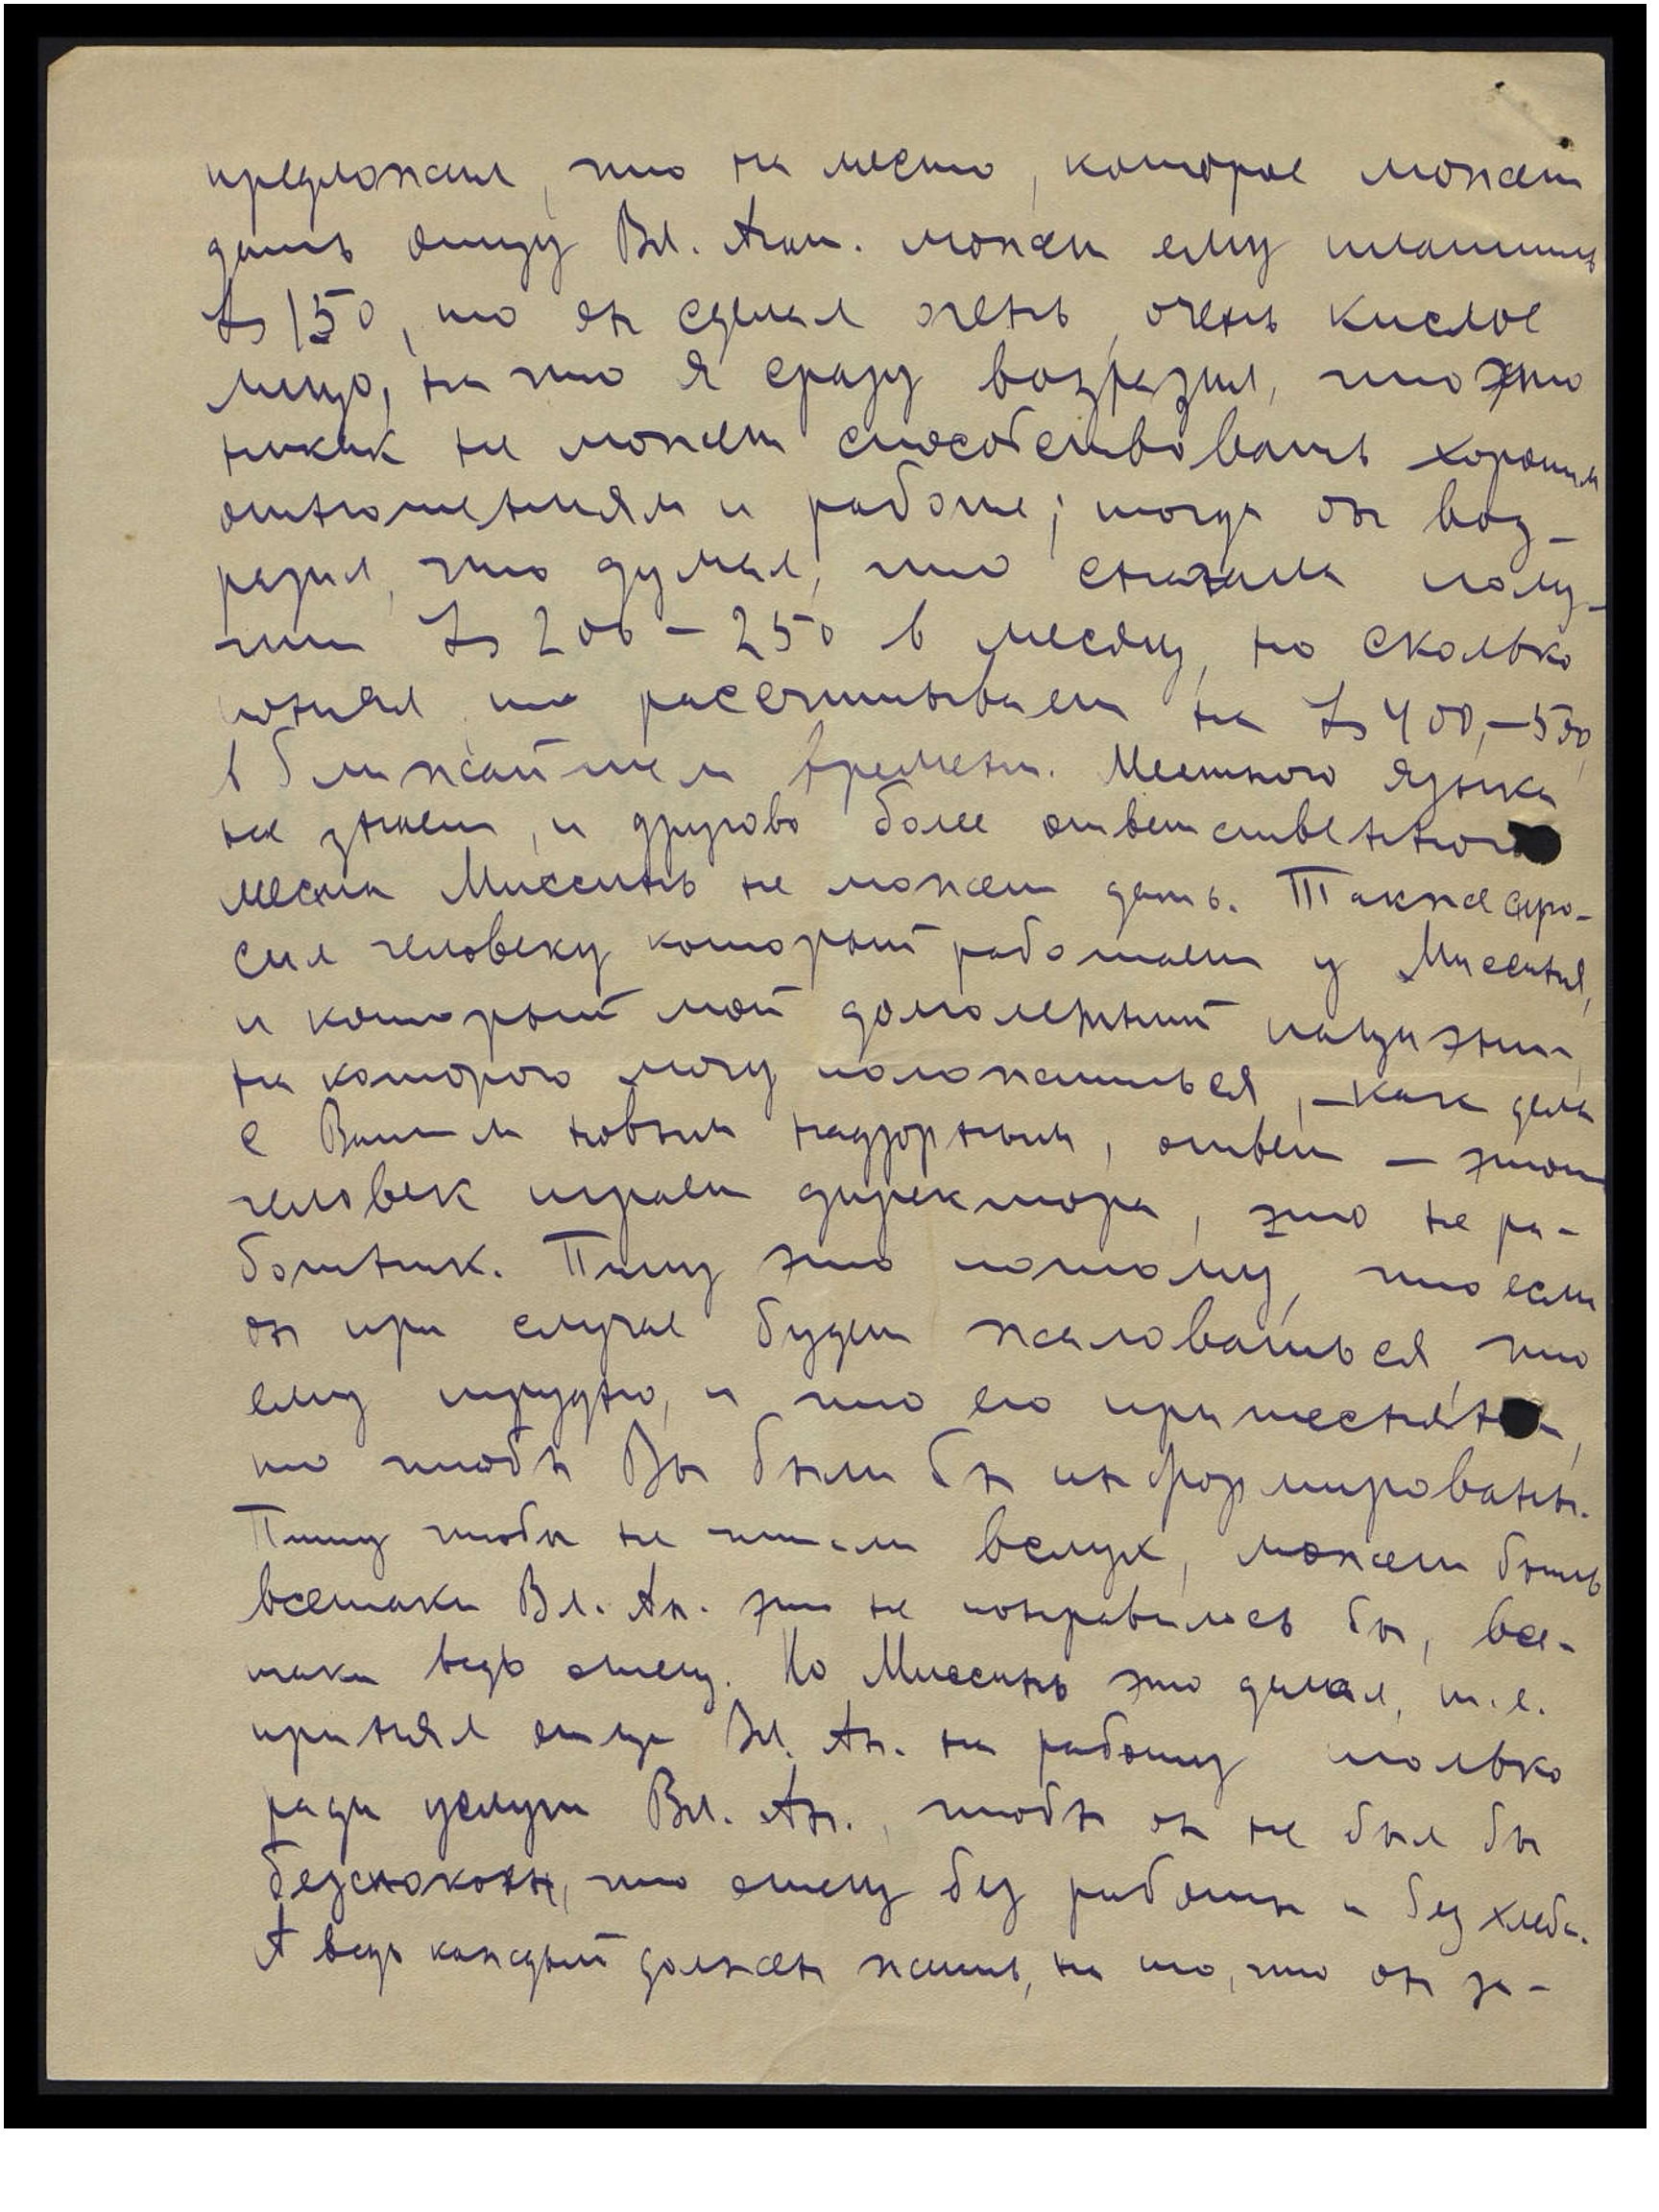 предложил, что на место, которое может
дать отцу Вл. Анат. может ему платить
Ls 150, то он сделал очень, очень кислое
лицо, на что я сразу возразил, что это
никак не может способствовать хорошим
отношениям и работе; тогда он воз-
разил, что думал, что сначала полу-
чит Ls 200 – 250 в месяц, но сколько
понял, что рассчитывает на Ls 400,–500,
в ближайшем времени. Местного языка
не знает, и другово более ответственного
места Миссинь не может дать. Также спро-
сил человеку который работает у Миссиня,
и который мой долголетний пациэнт,
на которого могу положиться, – как дела
с Вашим новым надзорным, ответ – этот
человек играет директора, это не ра-
ботник. Пишу это потому, что если
он при случае будет жаловаться, что
ему трудно, и что его притесняют,
то чтобы Вы были бы информированы.
Пишу чтобы не читали вслух, может быть
всетаки Вл. Ан. это не понравилось бы, все-
таки ведь отец. Но Миссинь это делал, т.е.
принял отца Вл. Ан. на работу только
ради услуги Вл. Ан., чтобы он не был бы
безспокоен, что отец без работы и без хлеба.
А ведь каждый должен жить, на то, что он за-